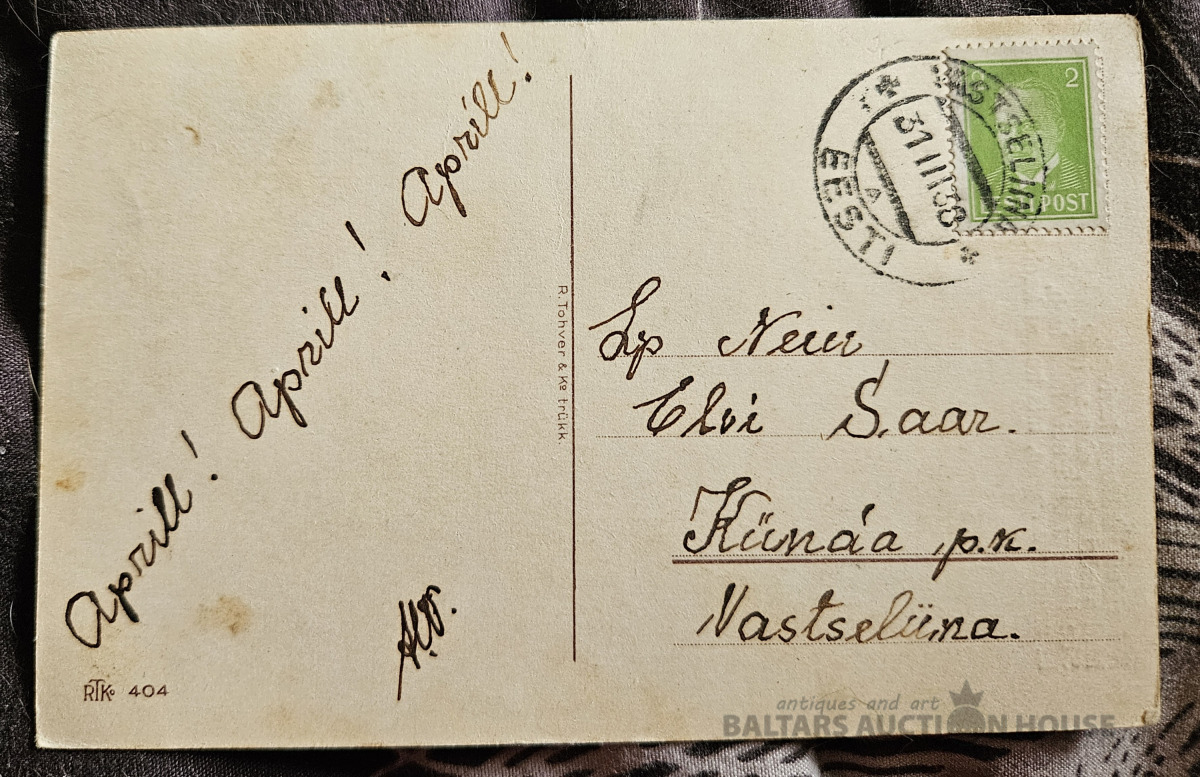 Aprill! Aprill! Aprill!
RTKo 404
R. Tohver & Ko trükk.
VASTSELIINA
31 III 38
EESTI
A
2
EESTI POST
Lp Neiu
Elvi Saar.
Künáa p.k.
Vastseliina.
antiques and art
BALTARS AUCTION HOUSE